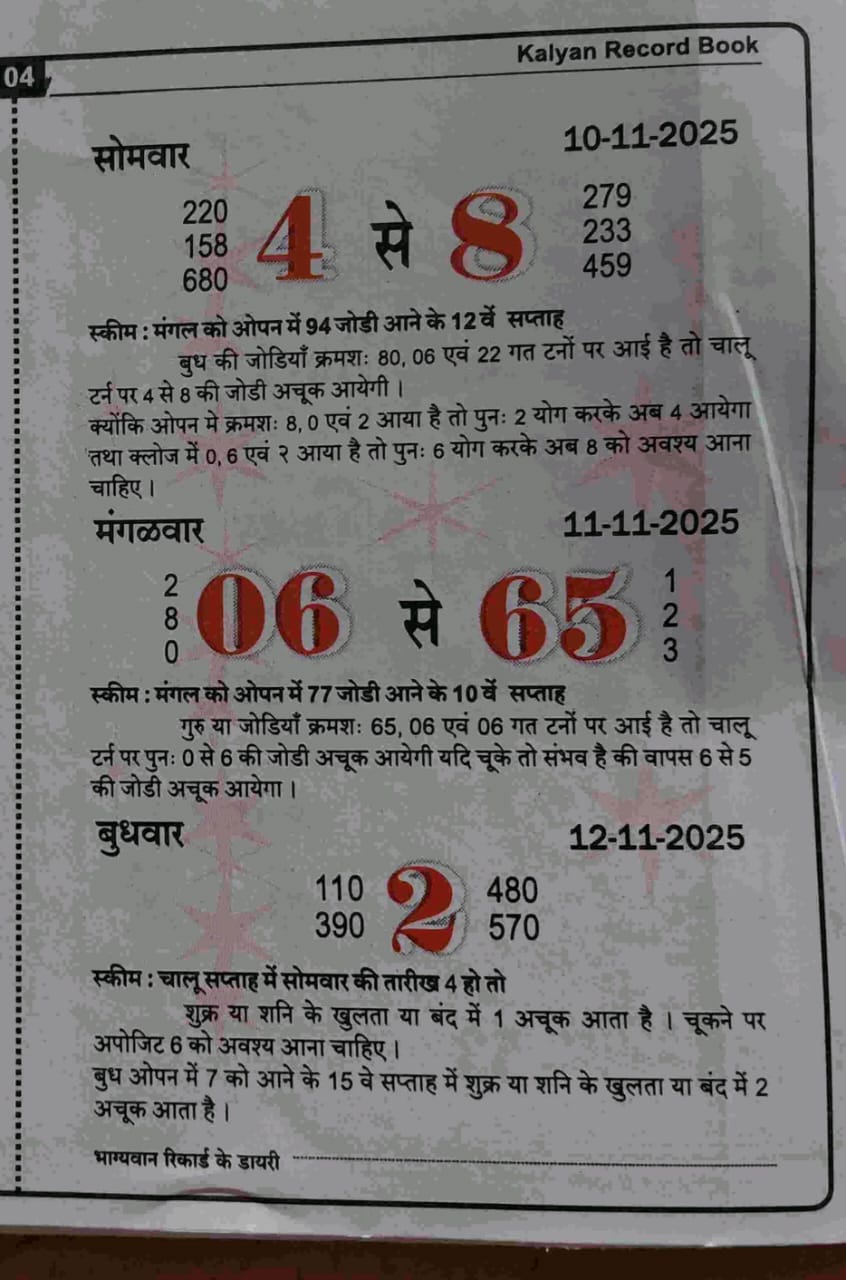 Kalyan Record Book
04
सोमवार 10-11-2025
220 279
158 4 से 8 233
680 459
स्कीम : मंगल को ओपन में 94 जोडी आने के 12 वें सप्ताह
बुध की जोडियाँ क्रमशः 80, 06 एवं 22 गत टर्नो पर आई है तो चालू
टर्न पर 4 से 8 की जोडी अचूक आयेगी ।
क्योंकि ओपन मे क्रमशः 8, 0 एवं 2 आया है तो पुनः 2 योग करके अब 4 आयेगा
तथा क्लोज में 0, 6 एवं २ आया है तो पुनः 6 योग करके अब 8 को अवश्य आना
चाहिए ।
मंगळवार 11-11-2025
2 1
8 06 से 65 2
0 3
स्कीम : मंगल को ओपन में 77 जोडी आने के 10 वें सप्ताह
गुरु या जोडियाँ क्रमशः 65, 06 एवं 06 गत टर्नो पर आई है तो चालू
टर्न पर पुनः 0 से 6 की जोडी अचूक आयेगी यदि चूके तो संभव है की वापस 6 से 5
की जोडी अचूक आयेगा ।
बुधवार 12-11-2025
110 2 480
390 570
स्कीम : चालू सप्ताह में सोमवार की तारीख 4 हो तो
शुक्र या शनि के खुलता या बंद में 1 अचूक आता है । चूकने पर
अपोजिट 6 को अवश्य आना चाहिए ।
बुध ओपन में 7 को आने के 15 वे सप्ताह में शुक्र या शनि के खुलता या बंद में 2
अचूक आता है ।
भाग्यवान रिकार्ड के डायरी